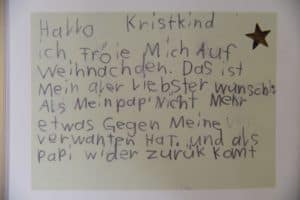 Hallo Kristkind
ich Fröie Mich Auf
Weihnachden. Das ist
Mein aler Liebster wunsch:
Als Mein papi Nicht Mehr
etwas Gegen Meine
verwanten Hat. und als
papi wider zurük komt